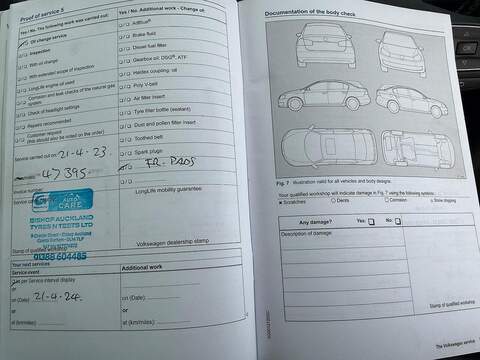 Proof of service 5
Yes / No. The following work was carried out:
Oil change service
Inspection
With oil change
With extended scope of inspection
LongLife engine oil used
Corrosion and leak checks of the natural gas system
Check of headlight settings
Repairs recommended
Customer request
(this should also be noted on the order)
Service carried out on: 21-4-23
47395
Invoice number
AUTO CARE
BISHOP AUCKLAND
TYRES N TESTS LTD
01388 604485
Stamp of qualified workshop
Yes / No. Additional work - Change of:
AdBlue®
Brake fluid
Diesel fuel filter
Gearbox oil: DSG®, ATF
Haldex coupling: oil
Poly V-belt
Air filter insert
Tyre filler bottle (sealant)
Dust and pollen filter insert
Toothed belt
Spark plugs
FR-PADS
LongLife mobility guarantee:
Volkswagen dealership stamp
Your next services
Service event
As per Service interval display
or
on (Date): 21-4-24
or
at (km/miles):
Additional work
on (Date):
or
at (km/miles):
Documentation of the body check
Fig. 7 Illustration valid for all vehicles and body designs.
Your qualified workshop will indicate damage in Fig. 7 using the following symbols:
x Scratches
○ Dents
□ Corrosion
◇ Stone chipping
Any damage? Yes: No:
Description of damage:
Stamp of qualified workshop
The Volkswagen service